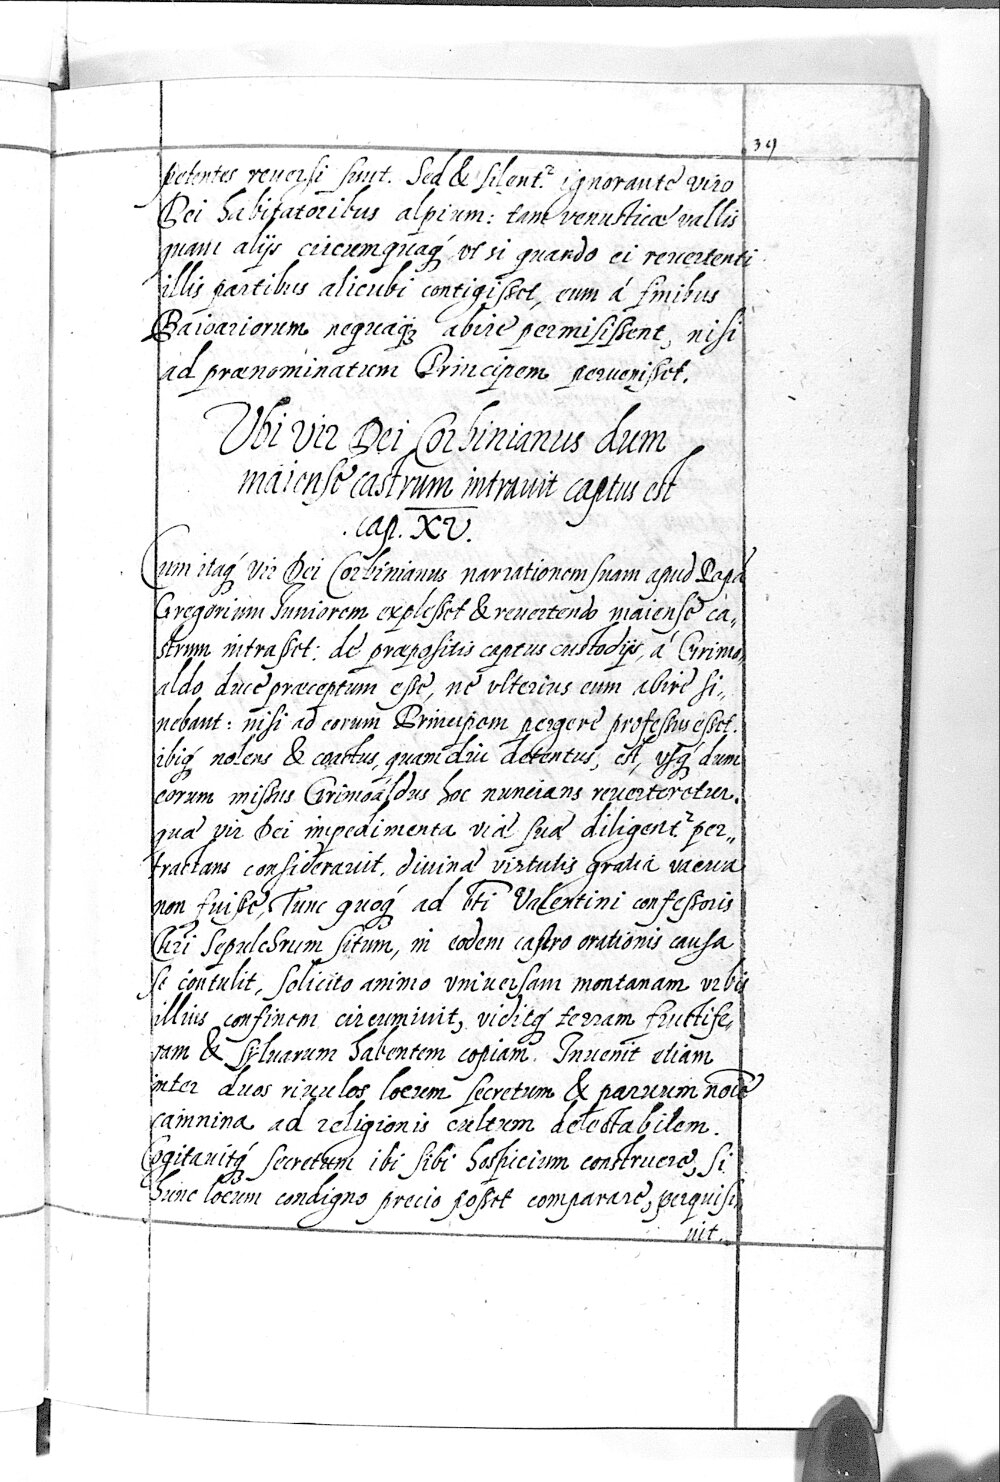 39
petentes reversi sunt. Sed & silent.r ignorante viro
Dei habitatoribus alpium: tam venusticæ vallis
quam alijs circumquaq́ vt si quando ei revertenti
illis partibus alicubi contigisset, eum á finibus
Baioariorum nequaq̃ abire permisissent, nisi
ad prænominatum Principem pervenisset.
Vbi vir Dei Corbinianus dum
maiense castrum intravit captus est
.cap. XV.
Cum itaq́ vir Dei Corbinianus narrationem suam apud Papã
Gregorium Iuniorem explesset & revertendo maiense ca,,
strum intrasset: de præpositis captus custodijs, á Grimo,
aldo duce præceptum esse, ne vlterius eum abire si,,
nebant: nisi ad eorum Principem pergere professus esset.
ibiq́ nolens & coactus, quamdiu detentus, est, vsq́ dum
eorum missus Grimoáldus hoc nuncians reverteretur.
qua vir Dei impedimenta via sua diligent.r per,,
tractans consideravit, divina virtutis gratia vacua
non fuisse, Tunc quoq́ ad bti Valentini confessoris
Chri sepulchrum situm, in eodem castro orationis causa
se contulit, solicito animo vniversam montanam vrbis
illius confinem circumivit, viditq́ terram fructife,
ram & sylvarum habentem copiam. Invenit etiam
inter duos rivulos locum secretum & parvum noie
camnina ad religionis cultum delectabilem.
Cogitavitq́ secretum ibi sibi hospicium construere, si
hunc locum condigno precio posset comparare, perquisi,
vit.